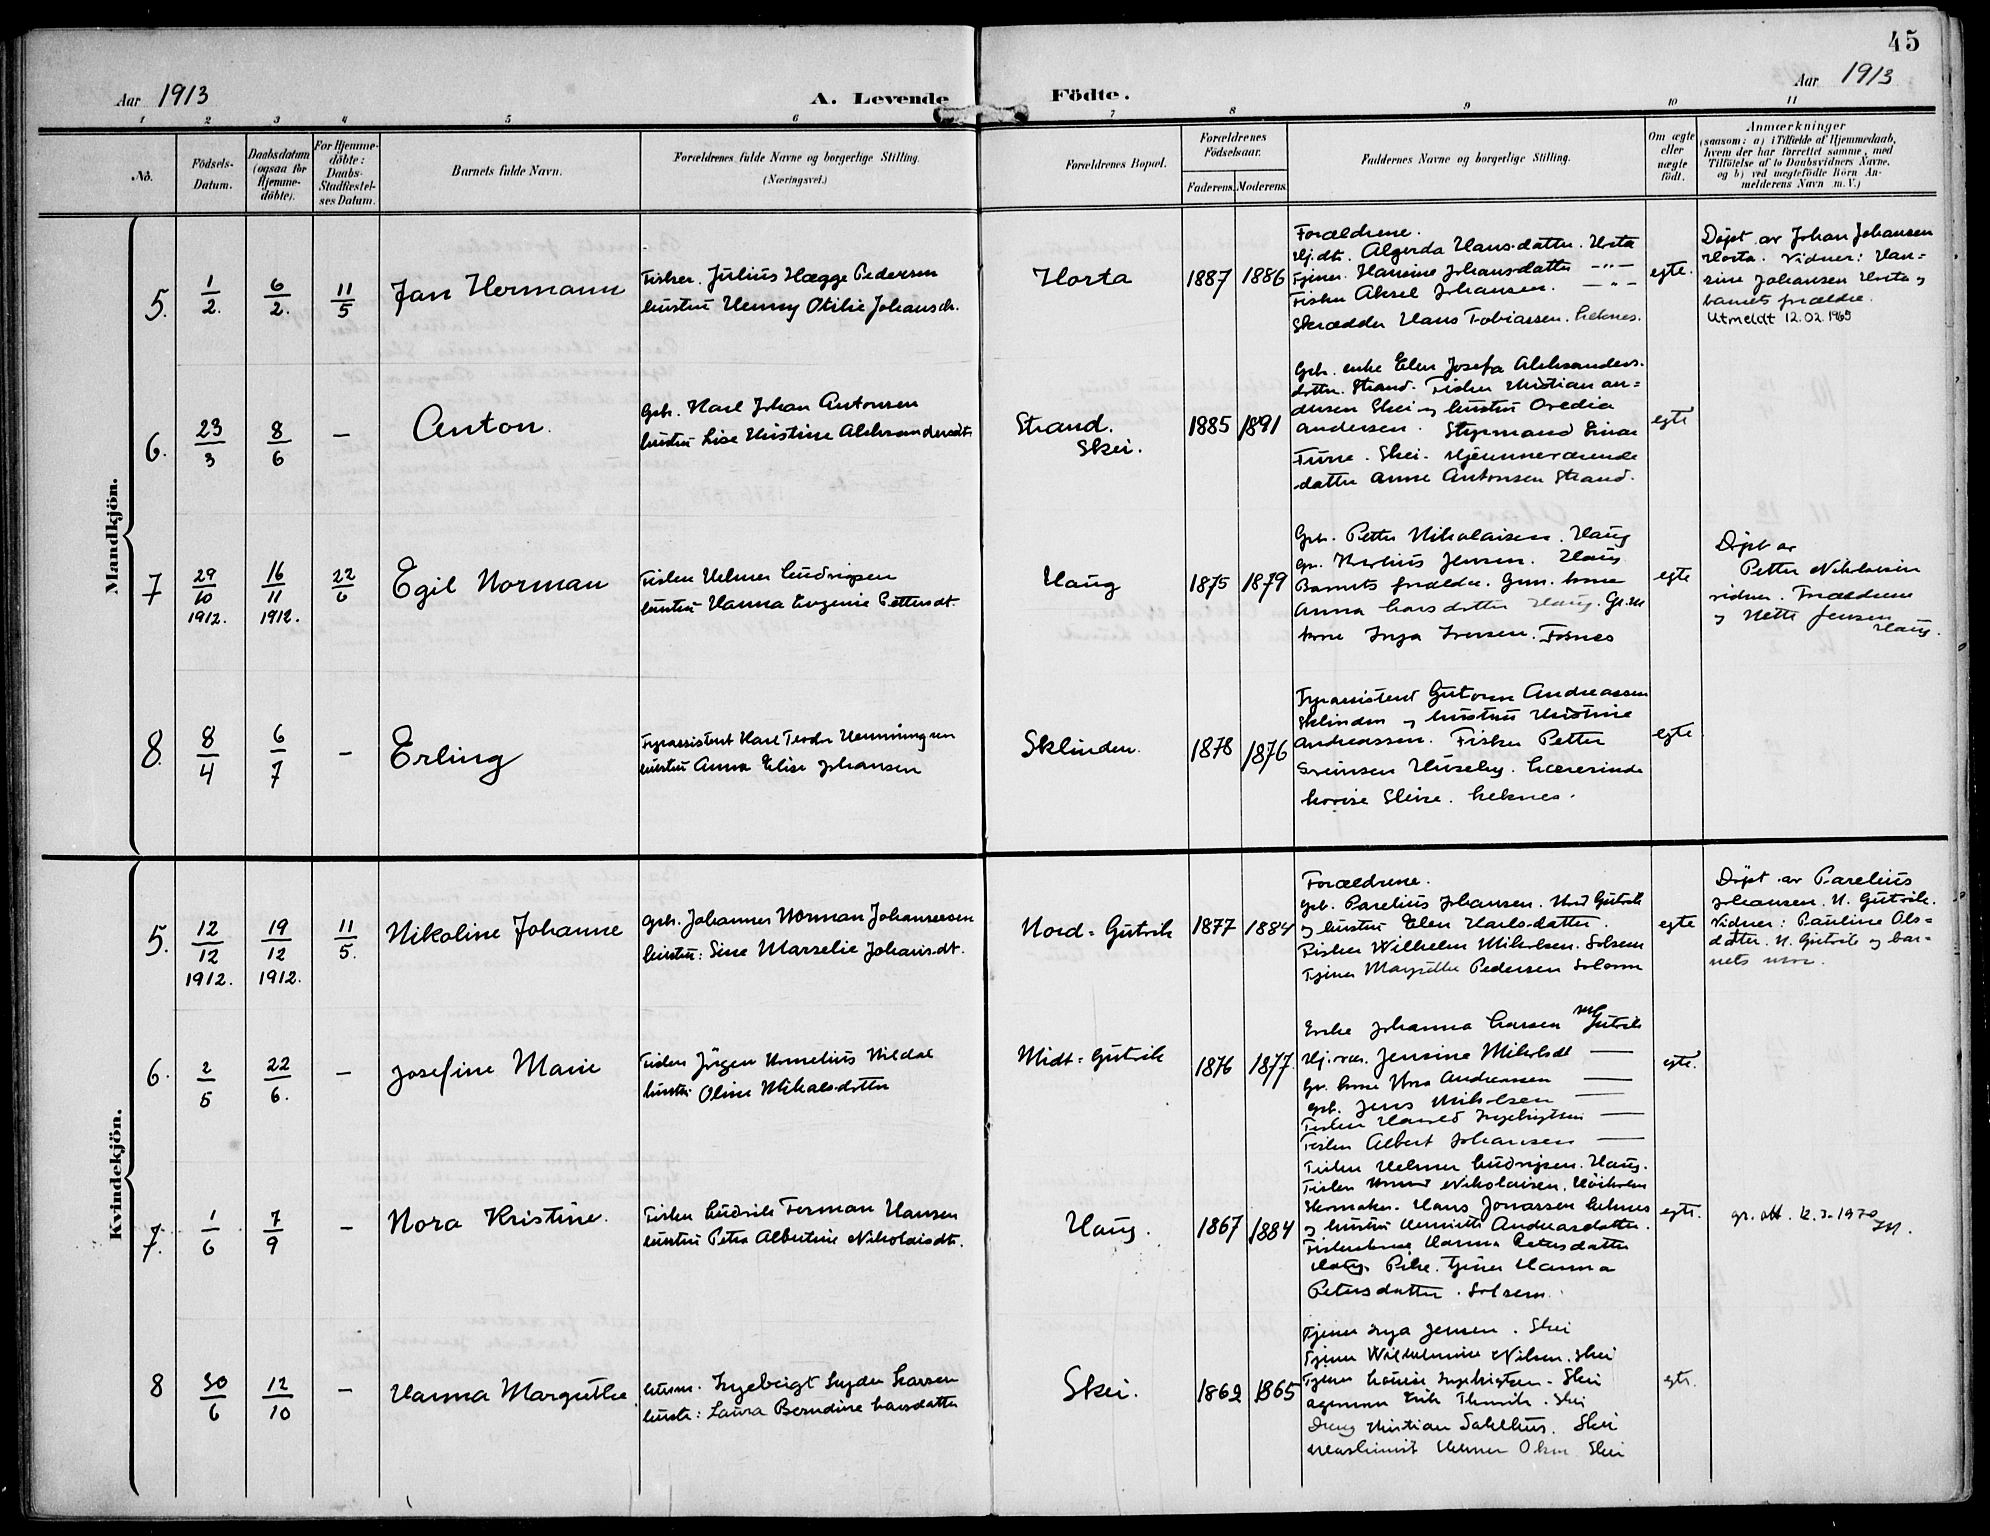 45
Aar 1913
A. Levende Födte.
Aar 1913
1 2 3 4 5 6 7 8 9 10 11
No.
Födsels-
Datum.
Daabsdatum
(ogsaa for
Hjemme-
döbte).
For Hjemme-
döbte:
Daabs-
Stadfæstel-
ses Datum.
Barnets fulde Navn.
Forældrenes fulde Navne og borgerlige Stilling.
(Næringsvei.)
Forældrenes Bopæl.
Forældrenes
Födselsaar.
Faderens. Moderens.
Faddernes Navne og borgerlige Stilling.
Om ægte
eller
uægte
født.
Anmærkninger
(saasom: a) i Tilfælde af Hjemmedaab,
hvem der har forrettet samme, med
Tilføielse af to Daabsvidners Navne,
og b) ved uægtefödte Börn An-
melderens Navn m. V.)
Mandkjön.
5. 1/2. 6/2. 11/5 Jan Hermann
Fisker. Julius Hægge Pedersen
hustru Henny Otilie Johansdt.
Horta 1887 1886
Forældrene.
Hj.dtr. Algerda Hansdatter. Horta
Tjener. Hansine Johansdatter —"—
Fisker Aksel Johansen. —"—
Skrædder Hans Tobiassen. Leknes.
egte.
Döpt av Johan Johansen
Horta. Vidner: Han=
sine Johansen Horta og
barnets forældre.
Utmeldt 12.02.1965
6. 23/3 8/6 — Anton.
Gbr. Karl Johan Antonsen
hustru Lise Kristine Aleksandersdt.
Strand.
Skei.
1885 1891
Gbr. enke Elen Josefa Aleksanders-
datter. Strand. Fisker Kristian an=
dersen Skei og hustru Ovedia
andersen. Styrmand Einar
Skei. Hjemmeværende
datter Anne Antonsen Strand.
egte
7 29/10 1912. 16/11 1912. 22/6 Egil Norman
Fisker Helmer Ludvigsen
hustru Hanna Eugenie Pettersdt.
Haug 1875 1879
Gbr. Petter Nikolaisen. Haug
Jensen. Haug
Barnets forældre. Gm. kone
Anna Larsdatter Haug.
kone Inga Iversen. Fosnes
egte
Döpt av
Petter Nikolaisen
vidner. Forældrene
og Nette Jensen
Haug.
8. 8/4 6/7 — Erling
Fyrassistent Karl Teodor Henningsen
hustru Anna Elise Johansen
Sklinden. 1878 1876
Fyrassistent Gutorm Andreassen
Sklinden og hustru Kristine
Andreassen. Fisker Petter
Sveinsen Huseby. Lærerinde
Lovise Skeie. Leknes.
egte
Kvindekjön.
5. 12/12 1912. 19/12 1912. 11/5. Nikoline Johanne
Gbr. Johannes Norman Johannesen
hustru: Sine Marselie Johansdt.
Nord=Gutvik 1877 1884
Forældrene.
Gbr. Parelius Johansen. Nord Gutvik
og hustru Elen Karlsdatter.
Fisker Wilhelm Mikalsen. Solsem
Tjener Margrethe Pedersen Solsem
egte
Döpt av Parelius
Johansen. N. Gutvik.
Vidner: Pauline Ols=
datter. N. Gutvik og bar=
nets mor.
6. 2/5 22/6. — Josefine Marie
Fisker Jörgen Kornelius Hildal
hustru Oline Mikalsdatter
Midt=Gutvik 1876 1877.
Enke Johanna Larsen M. Gutvik
Jensine —
Gr. kone Andreassen —
Gbr. Jens Mikalsen —
Fisker Harald Ingebrigtsen —
Fisker Albert Johansen —
egte.
7. 1/6 7/9 — Nora Kristine.
Fisker Ludvik Ferman Hansen
hustru Petra Albertine Nikolaisdt.
Haug. 1867 1884
Fisker Helmer Ludvigsen. Haug.
Fisker Nikolaisen.
Skomaker. Hans Jonassen Leknes
og hustru Henriette Andreasdatter.
Fiskerkone Hanna Petersdatter
Haug. Pike. Tjener Hanna
Petersdatter. Solsem.
egte.
12.3-1970
8 30/6 12/10 — Hanna Margrethe
Ingebrigt Larsen
hustr: Laura Berndine Larsdatter
Skei. 1862 1865
Tjener Inga Jensen. Skei
Tjener Wilhelmine Nilsen. Skei
Tjener Lovise Ingebrigtsen. Skei
Erik Skei
Dreng Kristian Skei
Maskinist Helmer Olsen Skei
egte.